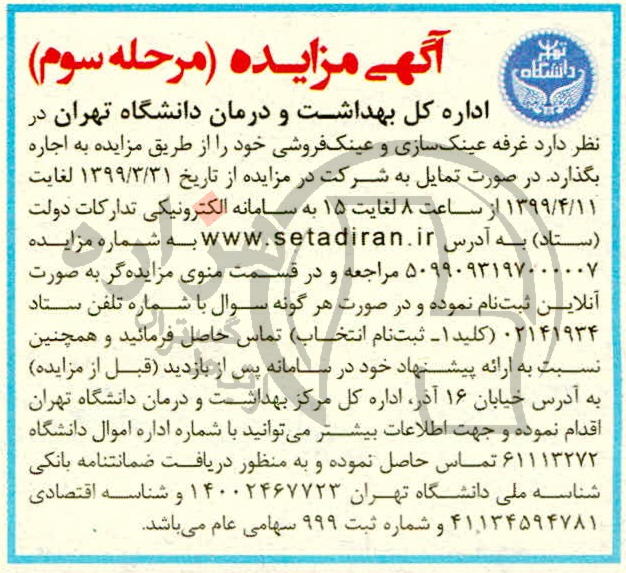 آگهی مزایده (مرحله سوم)
اداره کل بهداشت و درمان دانشگاه تهران در
نظر دارد غرفه عینک‌سازی و عینک‌فروشی خود را از طریق مزایده به اجاره
بگذارد. در صورت تمایل به شرکت در مزایده از تاریخ ۱۳۹۹/۳/۳۱ لغایت
۱۳۹۹/۴/۱۱ از ساعت ۸ لغایت ۱۵ به سامانه الکترونیکی تدارکات دولت
(ستاد) به آدرس www.setadiran.ir به شماره مزایده
۵۰۹۹۰۹۳۱۹۷۰۰۰۰۰۷ مراجعه و در قسمت منوی مزایده‌گر به صورت
آنلاین ثبت‌نام نموده و در صورت هر گونه سوال با شماره تلفن ستاد
۰۲۱۴۱۹۳۴ (کلید۱ـ ثبت‌نام انتخاب) تماس حاصل فرمائید و همچنین
نسبت به ارائه پیشنهاد خود در سامانه پس از بازدید (قبل از مزایده)
به آدرس خیابان ۱۶ آذر، اداره کل مرکز بهداشت و درمان دانشگاه تهران
اقدام نموده و جهت اطلاعات بیشتر می‌توانید با شماره اداره اموال دانشگاه
۶۱۱۱۳۲۷۲ تماس حاصل نموده و به منظور دریافت ضمانتنامه بانکی
شناسه ملی دانشگاه تهران ۱۴۰۰۲۴۶۷۷۲۳ و شناسه اقتصادی
۴۱۱۳۴۵۹۴۷۸۱ و شماره ثبت ۹۹۹ سهامی عام می‌باشد.